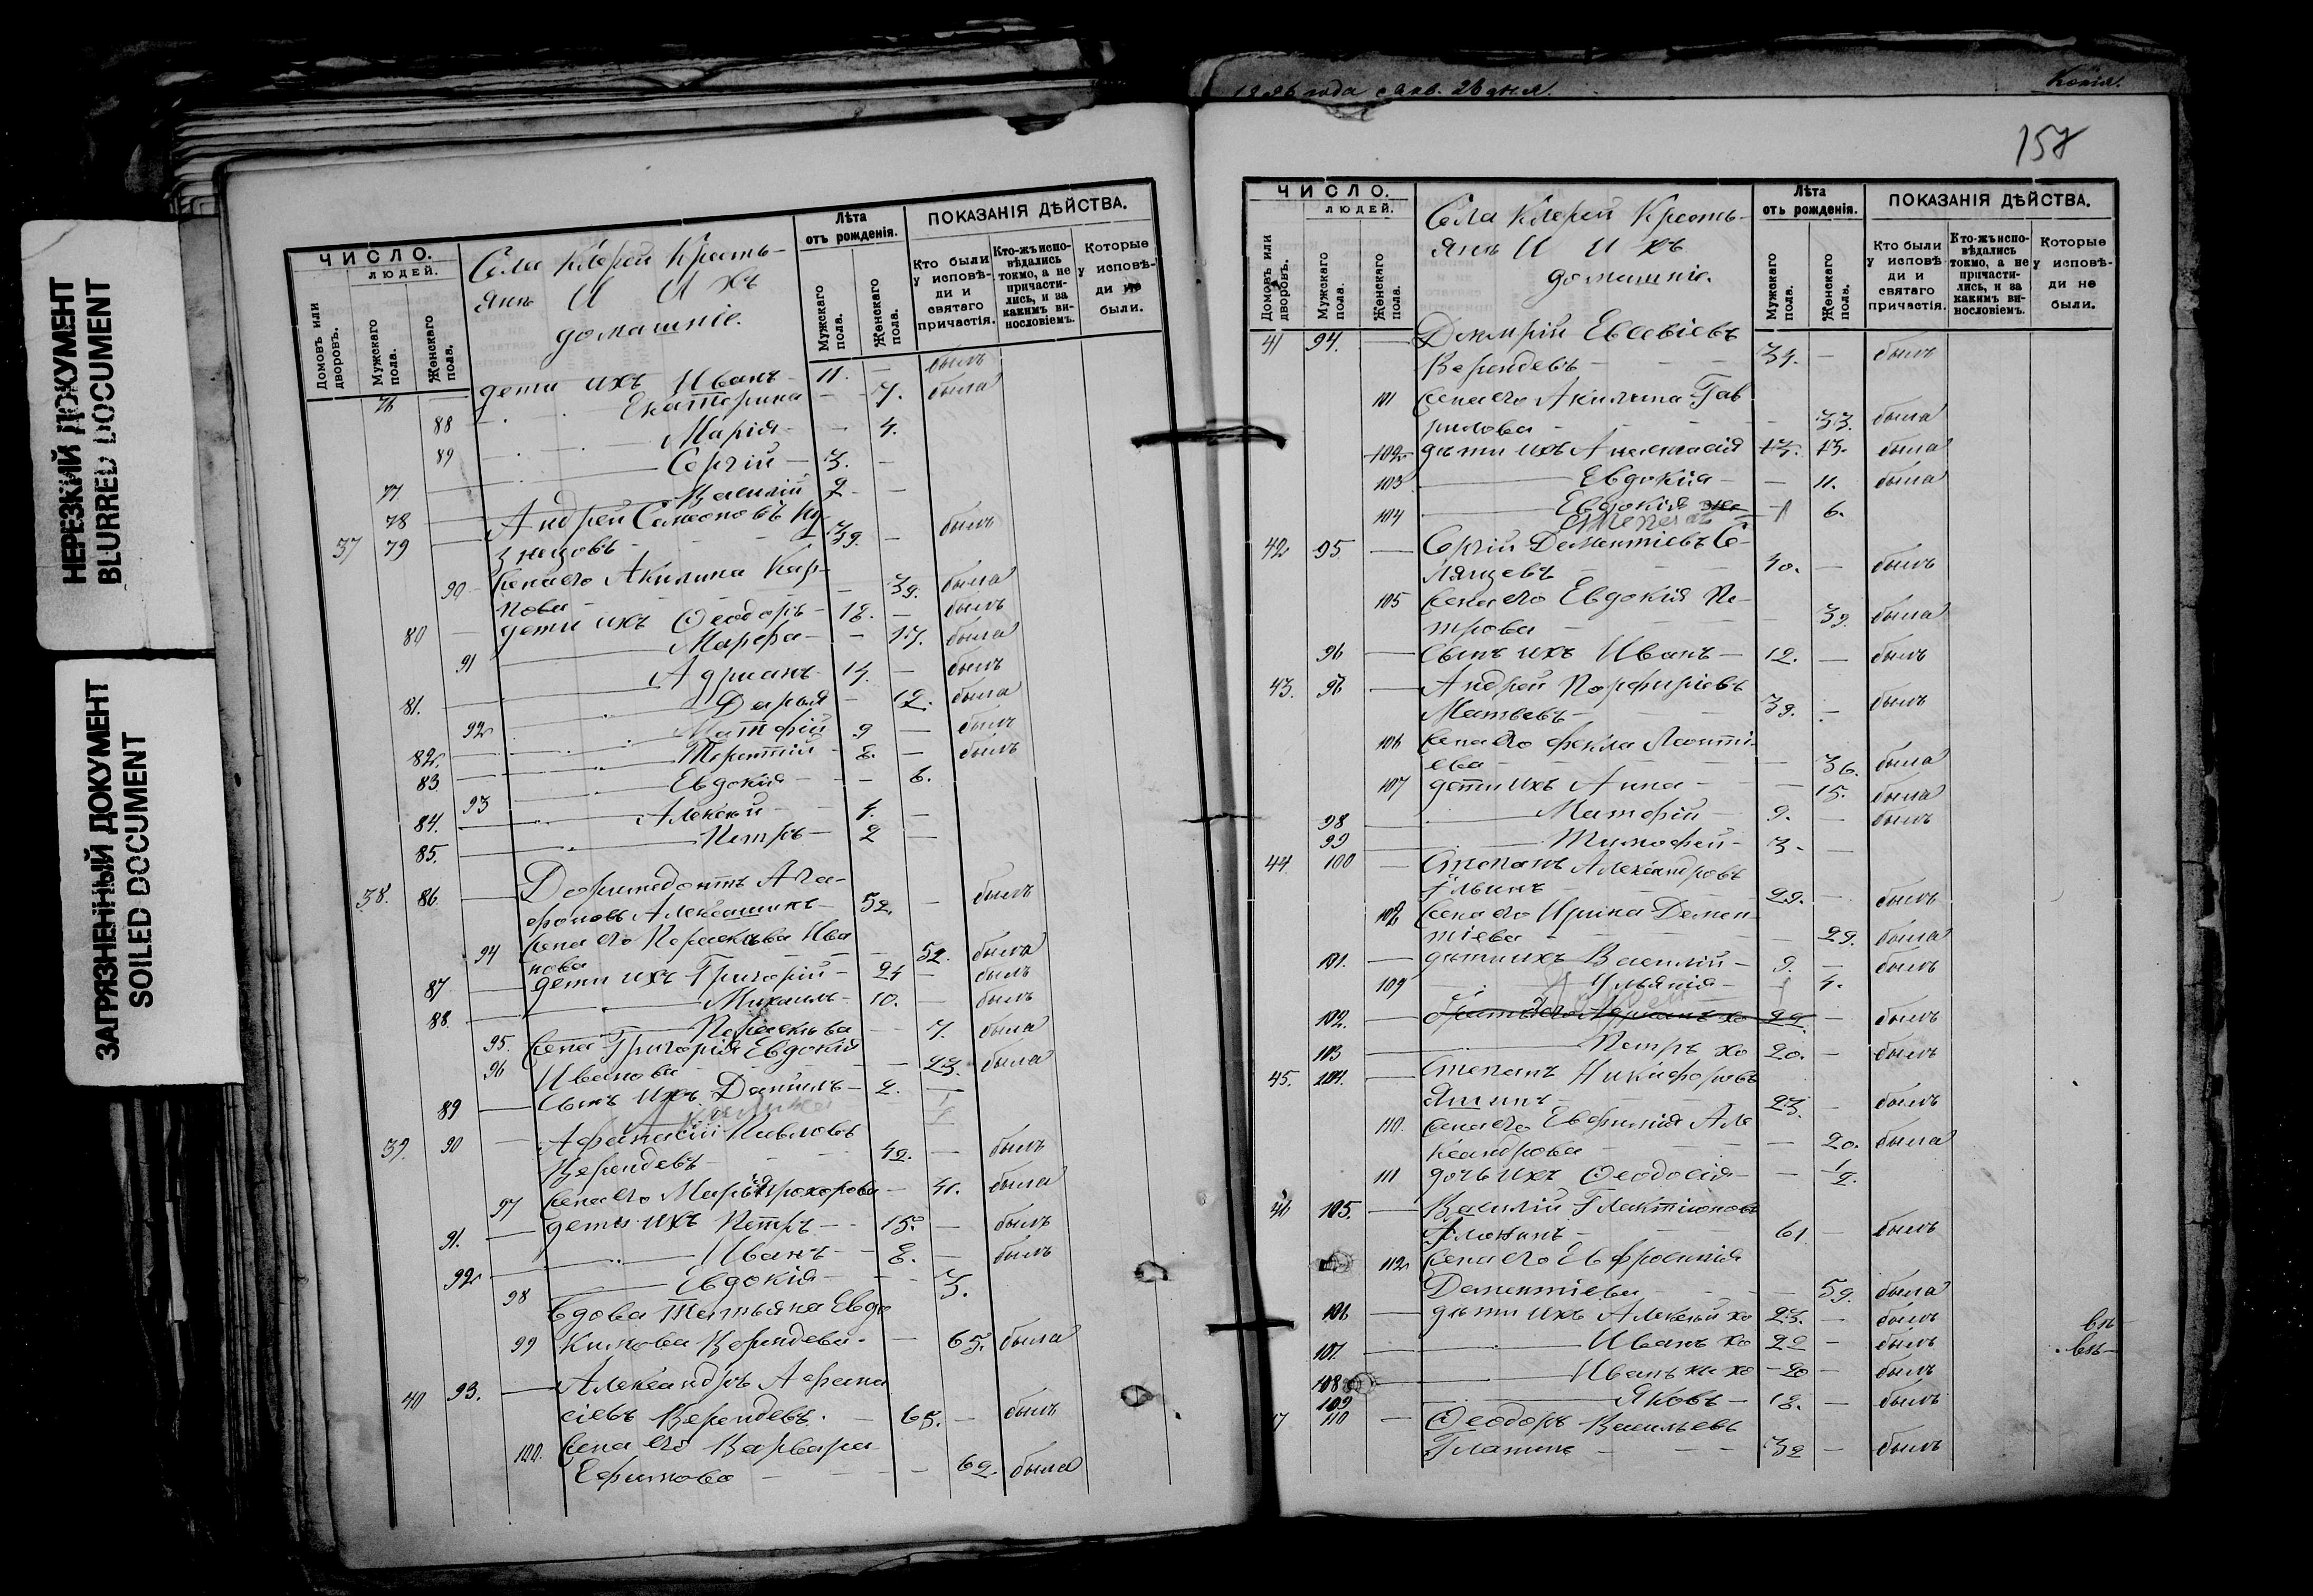 НЕРЕЗКИЙ ДОКУМЕНТ
BLURRED DOCUMENT
ЗАГРЯЗНЕННЫЙ ДОКУМЕНТ
SOILED DOCUMENT
ЧИСЛО.
ЛЮДЕЙ.
Домовъ или дворовъ.
Мужскаго пола.
Женскаго пола.
Села Клерей Кресть-
янъ И Ихъ
домашніе.
Лѣта
отъ рожденія.
Мужскаго пола.
Женскаго пола.
ПОКАЗАНІЯ ДѢЙСТВА.
Кто были у исповѣ-ди и святаго причастія.
Кто-жъ испо-вѣдались токмо, а не причасти-лись, и за какимъ ви-нословіемъ.
Которые у исповѣ-ди не были.
76 дети ихъ Иванъ 11. — былъ
88 Екатерина — 7. была
89 Марія — 4.
77 Сергій 3. —
78 Василій 2 —
37 79 Андрей Симеоновъ Ку-
знецовъ 39. — былъ
90 Жена его Акилина Кар-
пова — 39. была
80 дети ихъ Ѳеодоръ 18. — былъ
91 Марфа — 17. была
81. Адріанъ 14. — былъ
92 Дарья — 12. была
82. Матфій 9 — былъ
83 Терентій 8. — былъ
93 Евдокія — 6.
84. Алексій 4. —
85. Петръ 2 —
38. 86 Доримедонтъ Ага-
фоновъ Алексашинъ 52. — былъ
94 Жена его Параскева Ива
нова — 52. была
87 дети ихъ Григорій 24 — былъ
88. Михаилъ 10. — былъ
95. Параскева — 7. была
96 Жена Григорія Евдокія
Иванова — 23. была
89 Сынъ ихъ Даніилъ 2. —
39. 90 Афанасій Павловъ
Верендевъ 42. — былъ
97 Жена его Марія Прохорова — 41. была
91. дети ихъ Петръ 15. — былъ
92 Иванъ 8. — былъ
98 Евдокія — 3.
Вдова Татьяна Евдо
99 кимова Верендева — 65. была
40 93. Александръ Афана
сіевъ Верендевъ. 65. — былъ
100. Жена его Варвара
Ефимова — 62. была
1896 года янв. 26 дня.
Копія.
157
ЧИСЛО.
ЛЮДЕЙ.
Домовъ или дворовъ.
Мужскаго пола.
Женскаго пола.
Села Клерей Кресть-
янъ И Ихъ
домашніе.
Лѣта
отъ рожденія.
Мужскаго пола.
Женскаго пола.
ПОКАЗАНІЯ ДѢЙСТВА.
Кто были у исповѣ-ди и святаго причастія.
Кто-жъ испо-вѣдались токмо, а не причасти-лись, и за какимъ ви-нословіемъ.
Которые у исповѣ-ди не были.
41 94. Димитрій Евсевіевъ
Верендевъ 34. — былъ
101 Жена его Акилина Гав
рилова — 33. была
102 дѣти ихъ Анастасія 13. была
103 Евдокія — 11. была
104 Евдокія 6.
42 95 Сергій Дементіевъ Се-
лянцевъ 40. — былъ
105 Жена его Евдокія Пе-
трова — 39. была
96 Сынъ ихъ Иванъ 12. — былъ
43. 97 Андрей Порфиріевъ
Матвевъ 39. — былъ
106 Жена его Фекла Леонті-
ева — 36. была
107 дети ихъ Анна — 15. была
98 Матфій 9. — былъ
99 Тимофей 3. —
44 100 Степанъ Александровъ
Ильинъ 29. — былъ
108 Жена его Ирина Демен-
тіева — 29. была
101. дѣти ихъ Василій 9. — былъ
109 Ульянія — 4.
102. братъ его Адріанъ хо 22. — былъ
103 Петръ хо 20. — былъ
45. 104. Степанъ Никифоровъ
Яшинъ 23. — былъ
110. Жена его Евфимія Але
ксандрова — 20. была
111 дочь ихъ Ѳеодосія — 1/2.
46 105. Василій Галактіоновъ
61 — былъ
112 Жена его Евфросинія
Дементіева — 59. была
106 дѣти ихъ Алексій хо 23. — былъ
107. Иванъ хо 22 — былъ
108 Иванъ хо 20 — былъ
109 Яковъ 18. — былъ
110 Ѳеодоръ Васильевъ
32 — былъ